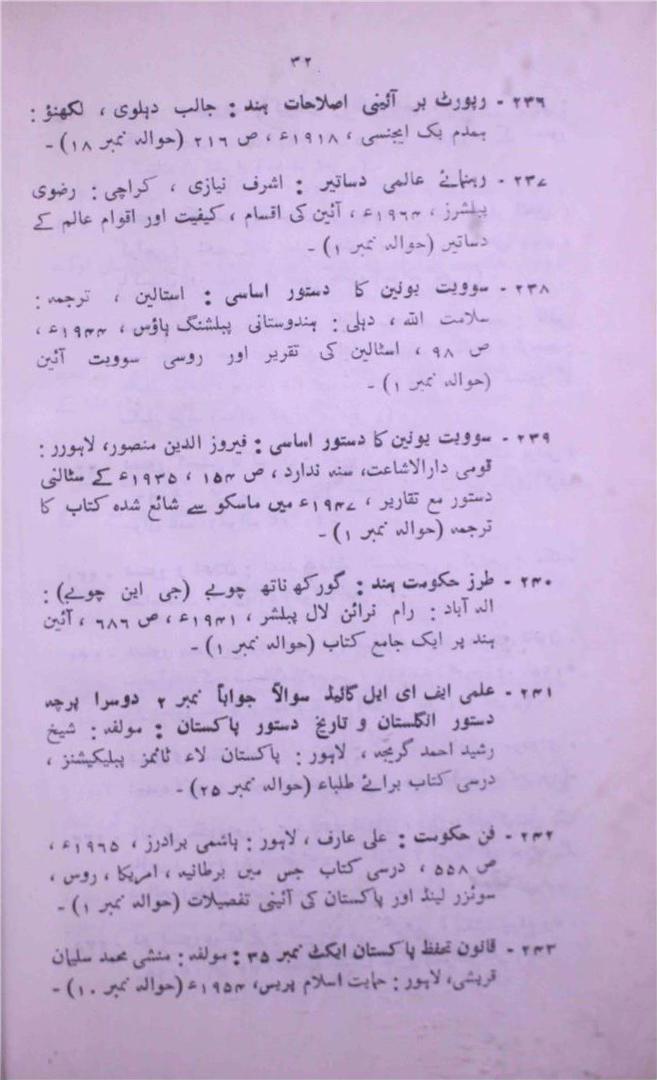 ۳۲
۲۳۶ - رپورٹ بر آئینی اصلاحات ہند : جالب دہلوی ، لکھنؤ :
ہمدم بک ایجنسی ، ۱۹۱۸ء ، ص ۲۱۶ (حوالہ نمبر ۱۸) -
۲۳۷ - رہنمائے عالمی دساتیر : اشرف نیازی ، کراچی : رضوی
پبلشرز ، ۱۹۶۴ء ، آئین کی اقسام ، کیفیت اور اقوام عالم کے
دساتیر (حوالہ نمبر ۱) -
۲۳۸ - سوویت یونین کا دستور اساسی : استالین ، ترجمہ :
سلامت اللہ ، دہلی : ہندوستانی پبلشنگ ہاؤس ، ۱۹۴۴ء ،
ص ۹۸ ، اسٹالین کی تقریر اور روسی سوویت آئین
(حوالہ نمبر ۱) -
۲۳۹ - سوویت یونین کا دستور اساسی : فیروز الدین منصور، لاہورر :
قومی دارالاشاعت، سنہ ندارد ، ص ۱۵۴ ، ۱۹۳۵ء کے سٹالنی
دستور مع تقاریر ، ۱۹۴۷ء میں ماسکو سے شائع شدہ کتاب کا
ترجمہ (حوالہ نمبر ۱) -
۲۴۰ - طرز حکومت ہند : گورکھ ناتھ چوبے (جی این چوبے) :
الہ آباد : رام نرائن لال پبلشر ، ۱۹۴۱ء ، ص ۶۸۶ ، آئین
ہند پر ایک جامع کتاب (حوالہ نمبر ۱) -
۲۴۱ - علمی ایف ای ایل گائیڈ سوالاً جواباً نمبر ۲ دوسرا پرچہ
دستور انگلستان و تاریخ دستور پاکستان : مولفہ : شیخ
رشید احمد گریجہ ، لاہور : پاکستان لاء ٹائمز پبلیکیشنز ،
درسی کتاب برائے طلباء (حوالہ نمبر ۲۵) -
۲۴۲ - فن حکومت : علی عارف ، لاہور : ہاشمی برادرز ، ۱۹۶۵ء ،
ص ۵۵۸ ، درسی کتاب جس میں برطانیہ ، امریکا ، روس ،
سوئزر لینڈ اور پاکستان کی آئینی تفصیلات (حوالہ نمبر ۱) -
۲۴۳ - قانون تحفظ پاکستان ایکٹ نمبر ۳۵ : مولفہ : منشی محمد سلیمان
قریشی، لاہور : حمایت اسلام پریس، ۱۹۵۴ء (حوالہ نمبر ۱۰) -